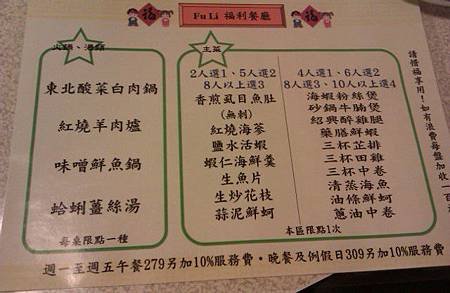 福
Fu Li 福利餐廳
福
火鍋、湯類
東北酸菜白肉鍋
紅燒羊肉爐
味噌鮮魚鍋
蛤蜊薑絲湯
每桌限點一種
主菜
2人選1、5人選2
8人以上選3
香煎虱目魚肚
(無刺)
紅燒海蔘
鹽水活蝦
蝦仁海鮮羹
生魚片
生炒花枝
蒜泥鮮蚵
4人選1、6人選2
8人選3、10人以上選4
海蝦粉絲煲
砂鍋牛腩煲
紹興醉雞腿
藥膳鮮蝦
三杯芷排
三杯田雞
三杯中卷
清蒸海魚
油條鮮蚵
蔥油中卷
本區限點1次
請惜福享用！如有浪費每盤加收一百
週一至週五午餐279另加10%服務費，晚餐及例假日309另加10%服務費